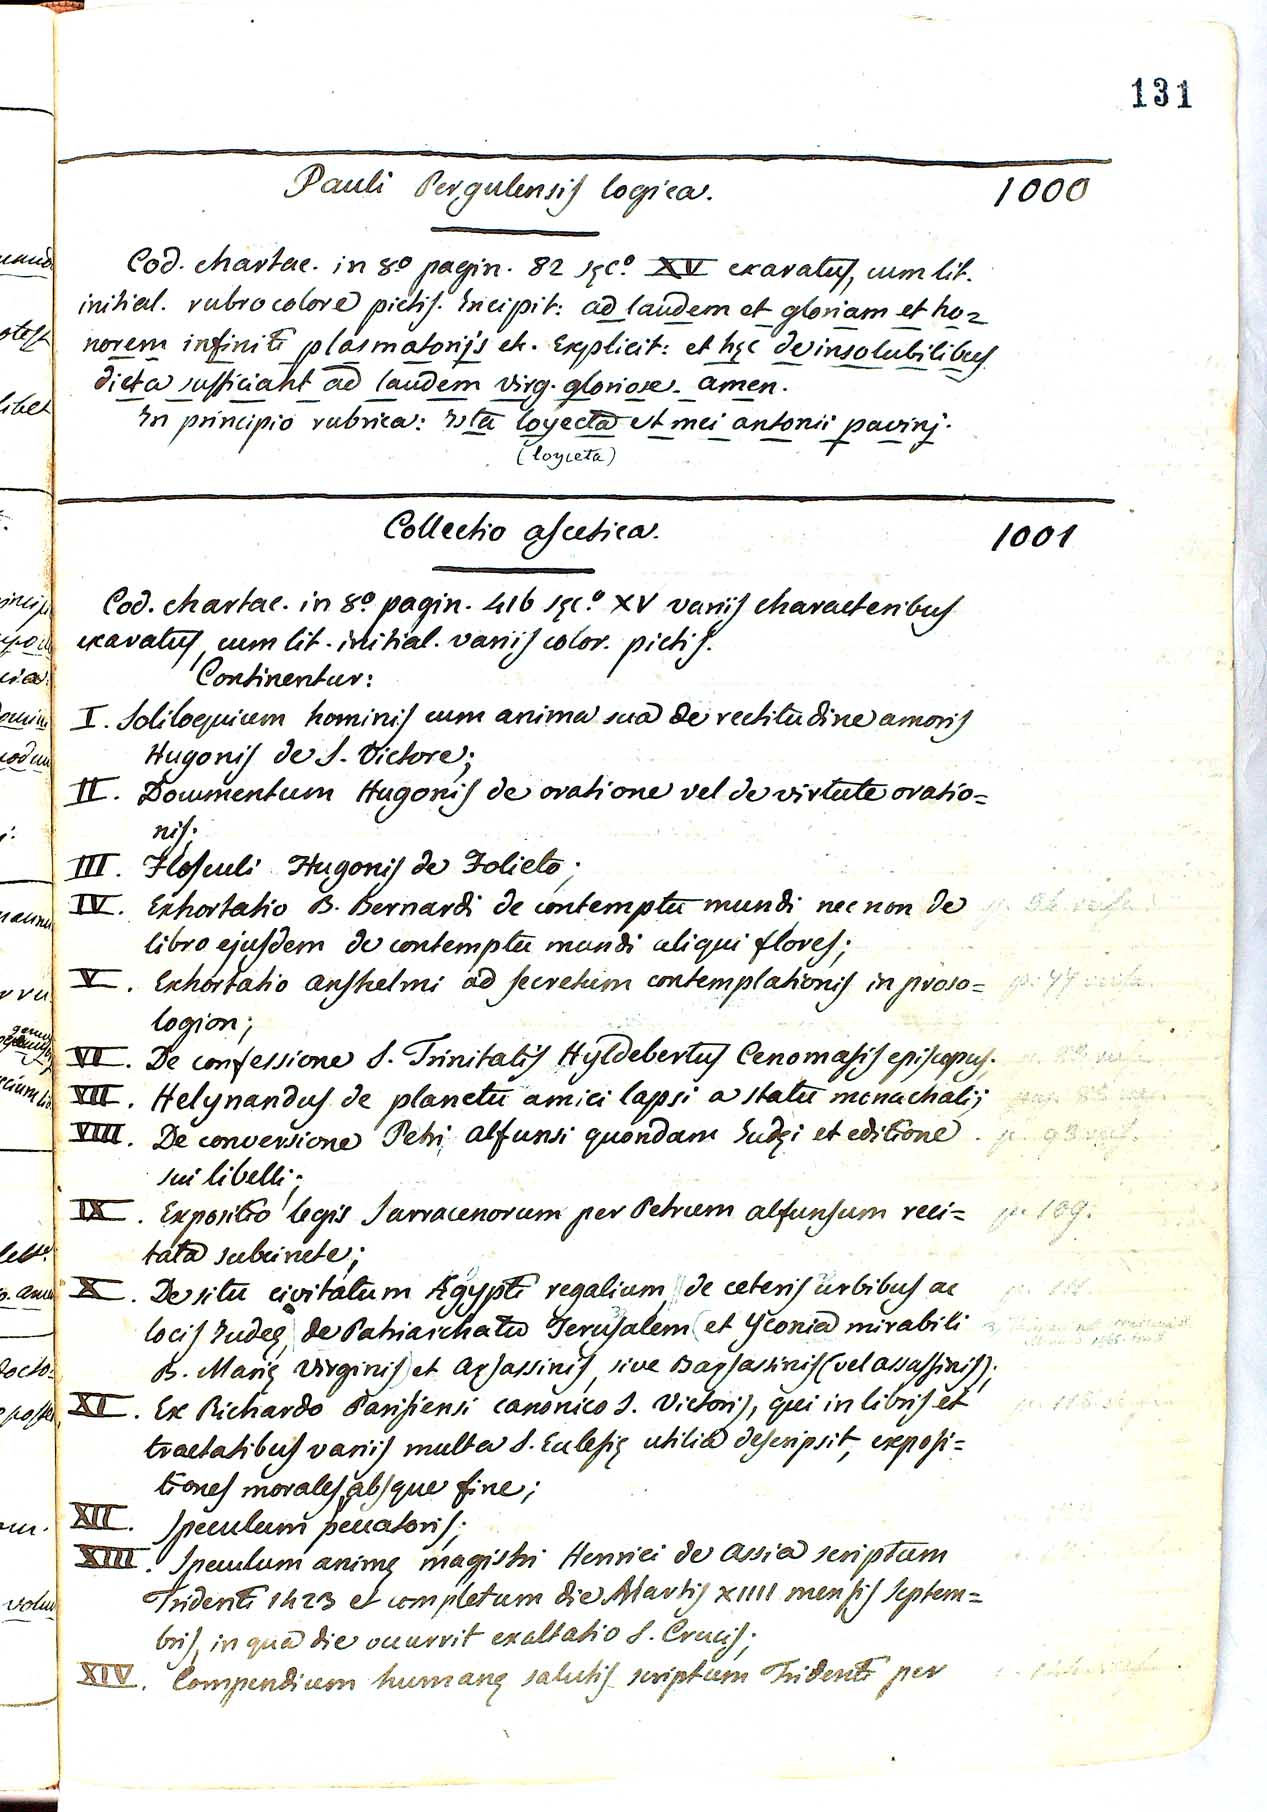 131
Pauli Pergulensis logica. 1000
Cod. chartac. in 8º pagin. 82 sęc.º XV exaratus, cum lit.
initial. rubro colore pictis. Incipit: ad laudem et gloriam et ho=
norem infiniti plasmatorijs etc. Explicit: et hęc de insolubilibus
dicta sufficiant ad laudem virg. gloriose. amen.
In principio rubrica: Ista loyecta est mei antonii pavinj.
(loyceta)
Collectio ascetica. 1001
Cod. chartac. in 8º pagin. 416 sęc.º XV variis characteribus
exaratus, cum lit. initial. variis color. pictis.
Continentur:
I. Soliloquium hominis cum anima sua de rectitudine amoris
Hugonis de S. Victore;
II. Documentum Hugonis de oratione vel de virtute oratio=
nis;
III. Flosculi Hugonis de Folieto;
IV. Exhortatio B. Bernardi de contemptu mundi nec non de
libro ejusdem de contemptu mundi aliqui flores;
V. Exhortatio Anshelmi ad secretum contemplationis in proso= p. 77 versa.
logion;
VI. De confessione S. Trinitatis Hyldebertus Cenomasis episcopus;
VII. Helynandus de planctu amici lapsi a statu monachali;
VIII. De conversione Petri alfunsi quondam Judęi et editione p. 93 vers.
sui libelli;
IX. Expositio legis Sarracenorum per Petrum alfunsum reci= p. 109.
tata subcincte;
X. De situ civitatum Ægypti regalium, de ceteris urbibus ac
locis Judeę, de Patriarchatu Jerusalem (et Yconia mirabili
B. Marię Virginis) et Assassinis, sive Bassassinis (vel assassinis);
XI. Ex Richardo Parisiensi canonico S. Victoris, qui in libris et
tractatibus variis multa S. Eclesię utilia descripsit, exposi=
tiones morales absque fine;
XII. Speculum peccatoris;
XIII. Speculum animę magistri Henrici de Assia scriptum
Tridenti 1423 et completum die Martis XIIII mensis septem=
bris, in qua die occurrit exaltatio S. Crucis;
XIV. Compendium humanę salutis scriptum Tridenti per